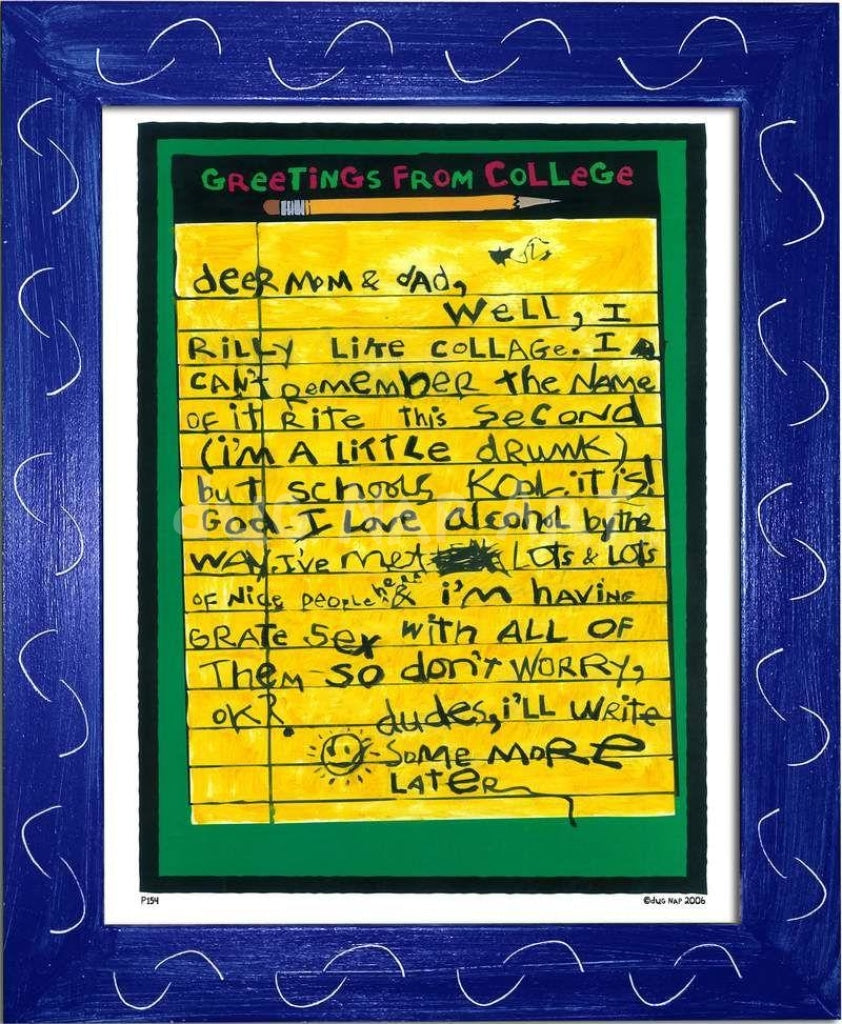 GReeTiNGS FROM COLLeGe
deeR MOM & dAd,
WeLL, I
RiLLY LiKe COLLAGe. I
CAN'T ReMeMbeR the NAMe
OF iT RiTe This SeCOND
(i'M A LiTTLe dRUNK)
buT schooLs KOOL. iT is!
God - I Love alcohol by the
WAY. I'Ve meT LOTs & LOTs
OF Nice peopLe here & i'm haviNg
GRATe Sex With ALL OF
TheM so don't WORRY,
OK? dudes, i'LL WRiTe
SOMe MORe
LATeR
P154
©dug NAP 2006